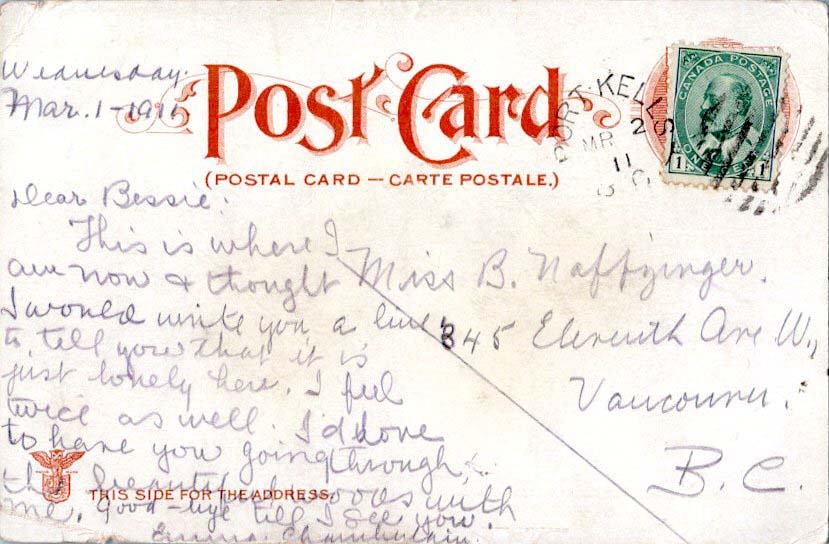 Wednesday.
Mar. 1-1911
Post Card
(POSTAL CARD — CARTE POSTALE.)
PORT KELLS
MR 2
11
B.C.
CANADA POSTAGE
1 ONE CENT 1
Dear Bessie:
This is where I
am now & thought
I would write you a line
to tell you that it is
just lonely here. I feel
twice as well. I'd love
to have you going through
the beautiful woods with
me. Good-bye till I see you.
Emma Chamberlain.
Miss B. Naffzinger.
845 Eleventh Ave W.,
Vancouver,
B.C.
THIS SIDE FOR THE ADDRESS.